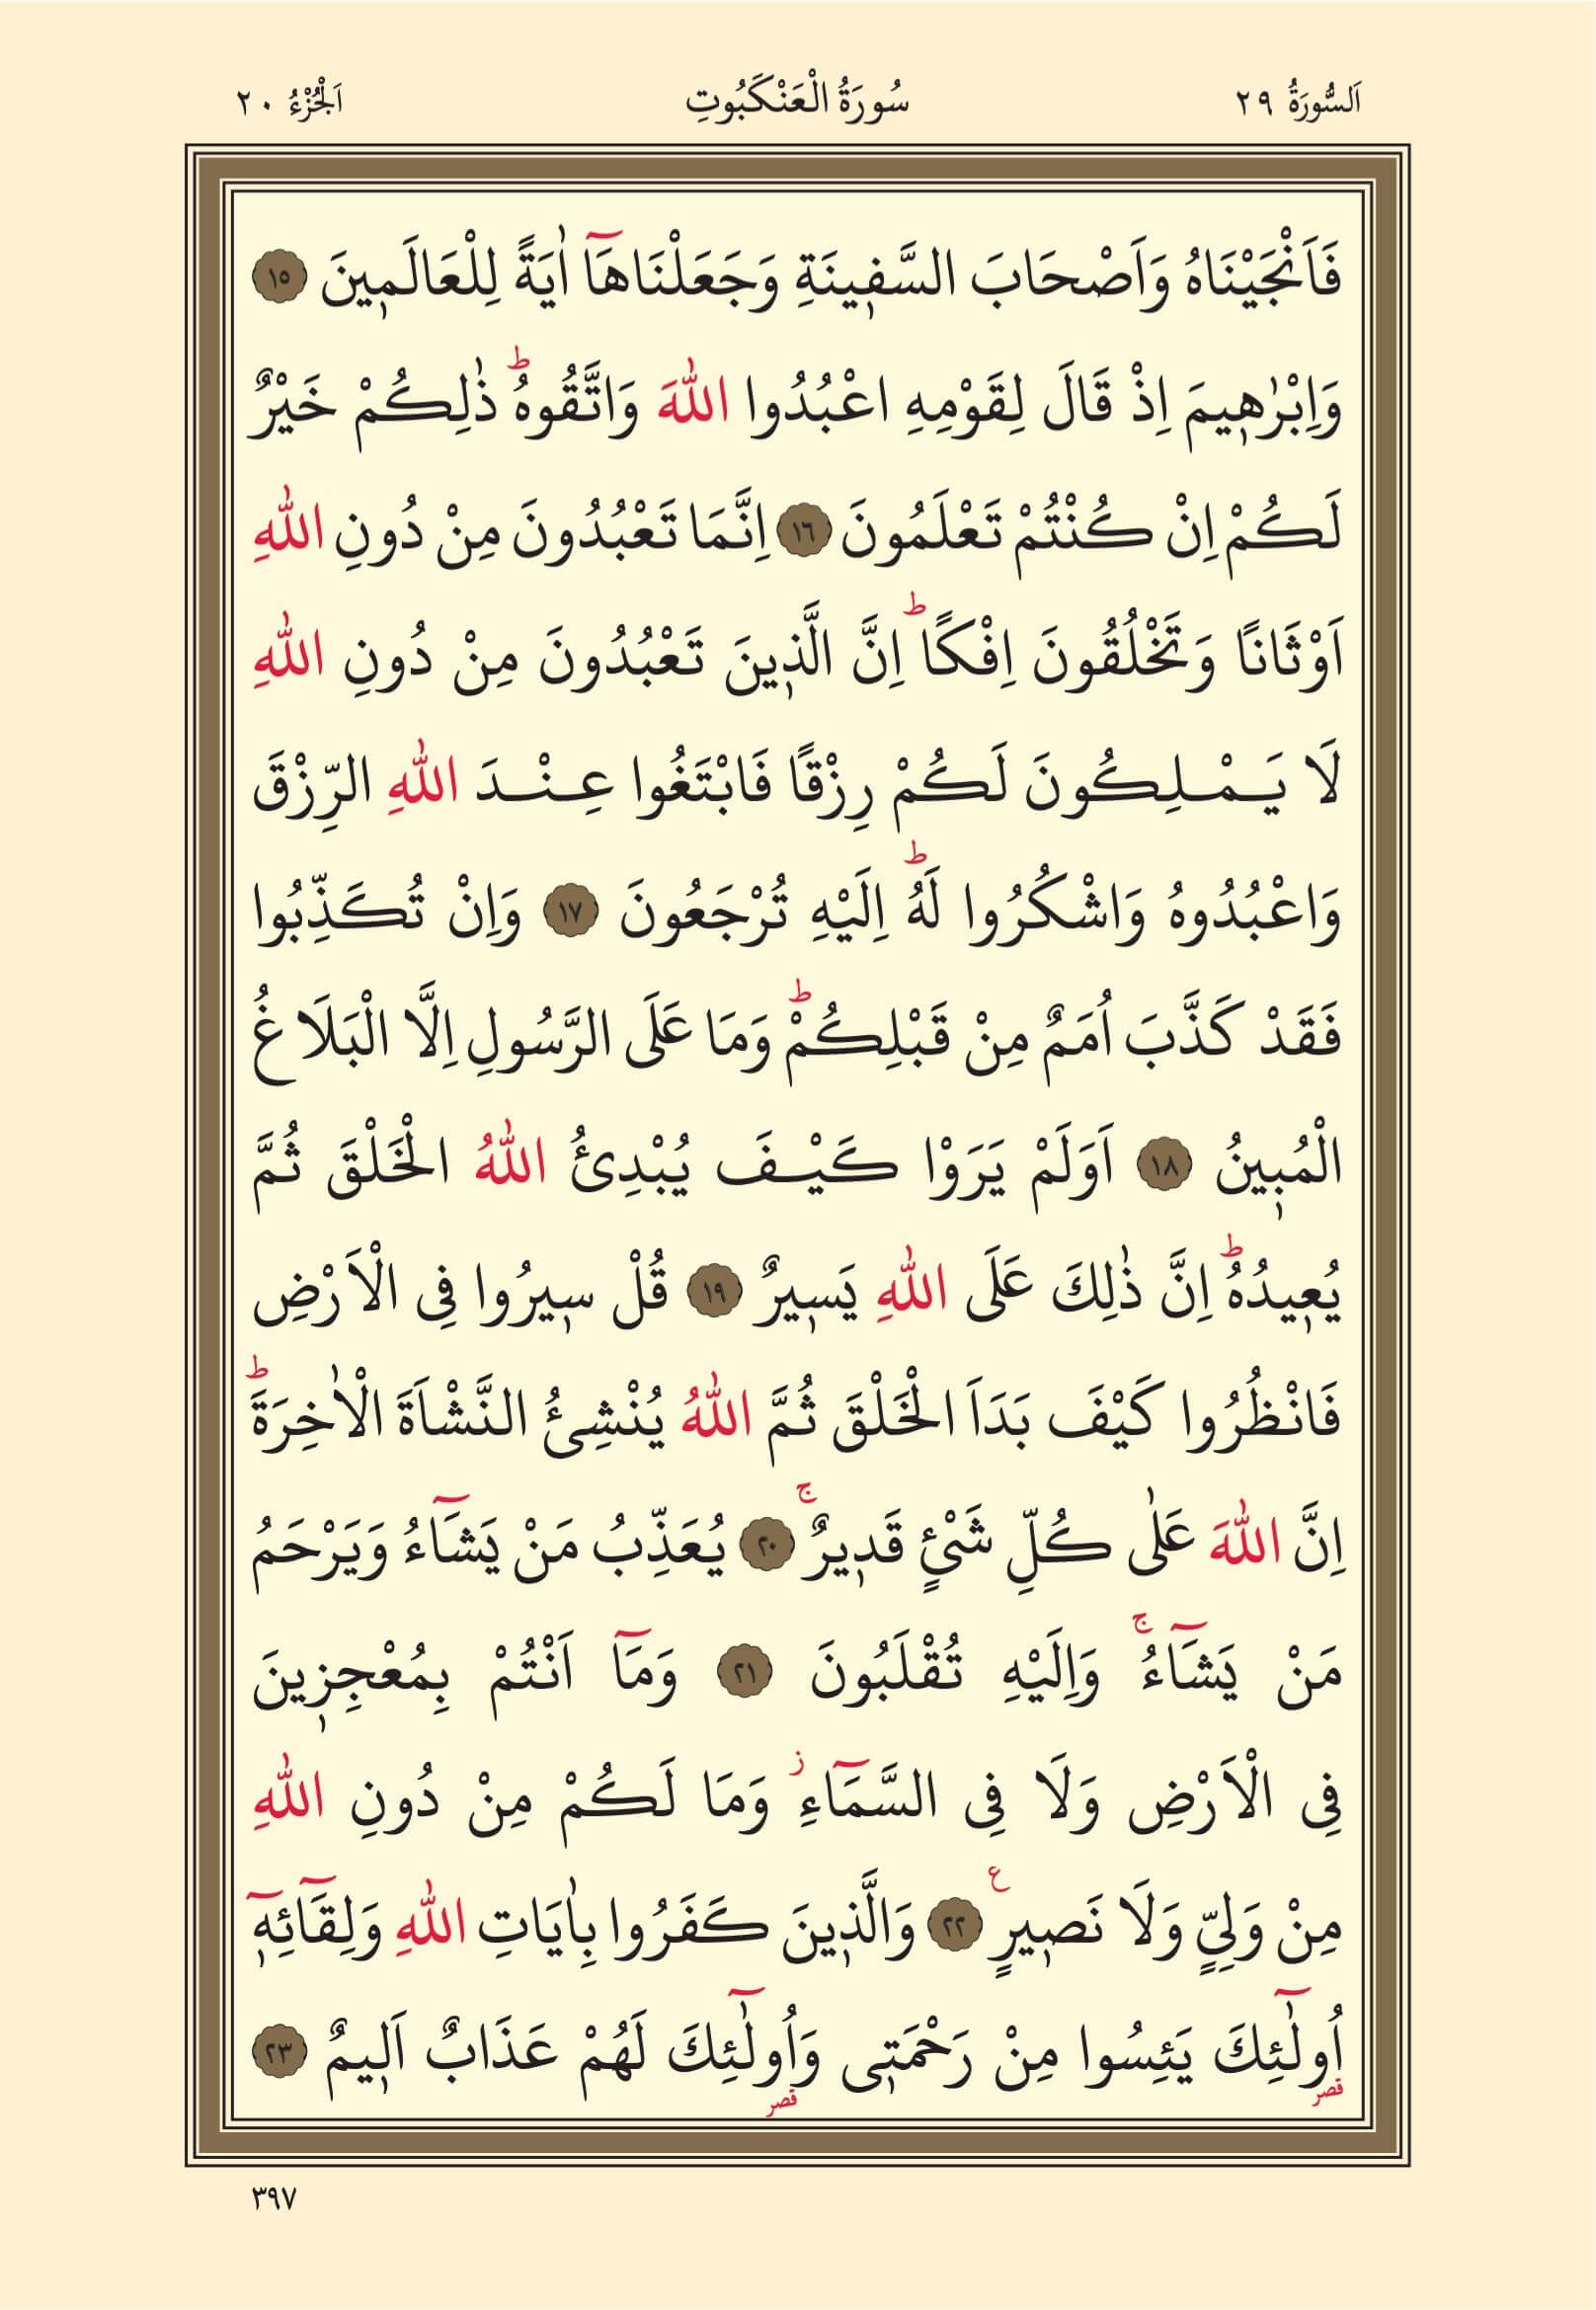 اَلسُّورَةُ ٢٩ سُورَةُ الْعَنْكَبُوتِ اَلْجُزْءُ ٢٠
فَاَنْجَيْنَاهُ وَاَصْحَابَ السَّف۪ينَةِ وَجَعَلْنَاهَٓا اٰيَةً لِلْعَالَم۪ينَ ١٥
وَاِبْرٰه۪يمَ اِذْ قَالَ لِقَوْمِهِ اعْبُدُوا اللّٰهَ وَاتَّقُوهُۜ ذٰلِكُمْ خَيْرٌ
لَكُمْ اِنْ كُنْتُمْ تَعْلَمُونَ ١٦ اِنَّمَا تَعْبُدُونَ مِنْ دُونِ اللّٰهِ
اَوْثَانًا وَتَخْلُقُونَ اِفْكًاۜ اِنَّ الَّذ۪ينَ تَعْبُدُونَ مِنْ دُونِ اللّٰهِ
لَا يَمْلِكُونَ لَكُمْ رِزْقًا فَابْتَغُوا عِنْدَ اللّٰهِ الرِّزْقَ
وَاعْبُدُوهُ وَاشْكُرُوا لَهُۜ اِلَيْهِ تُرْجَعُونَ ١٧ وَاِنْ تُكَذِّبُوا
فَقَدْ كَذَّبَ اُمَمٌ مِنْ قَبْلِكُمْۜ وَمَا عَلَى الرَّسُولِ اِلَّا الْبَلَاغُ
الْمُب۪ينُ ١٨ اَوَلَمْ يَرَوْا كَيْفَ يُبْدِئُ اللّٰهُ الْخَلْقَ ثُمَّ
يُع۪يدُهُۜ اِنَّ ذٰلِكَ عَلَى اللّٰهِ يَس۪يرٌ ١٩ قُلْ س۪يرُوا فِي الْاَرْضِ
فَانْظُرُوا كَيْفَ بَدَاَ الْخَلْقَ ثُمَّ اللّٰهُ يُنْشِئُ النَّشْاَةَ الْاٰخِرَةَۜ
اِنَّ اللّٰهَ عَلٰى كُلِّ شَيْءٍ قَد۪يرٌۚ ٢٠ يُعَذِّبُ مَنْ يَشَٓاءُ وَيَرْحَمُ
مَنْ يَشَٓاءُۚ وَاِلَيْهِ تُقْلَبُونَ ٢١ وَمَٓا اَنْتُمْ بِمُعْجِز۪ينَ
فِي الْاَرْضِ وَلَا فِي السَّمَٓاءِۘ وَمَا لَكُمْ مِنْ دُونِ اللّٰهِ
مِنْ وَلِيٍّ وَلَا نَص۪يرٍ۟ ٢٢ وَالَّذ۪ينَ كَفَرُوا بِاٰيَاتِ اللّٰهِ وَلِقَٓائِه۪ٓ
اُولٰٓئِكَ يَئِسُوا مِنْ رَحْمَت۪ي وَاُولٰٓئِكَ لَهُمْ عَذَابٌ اَل۪يمٌ ٢٣
قصر قصر
٣٩٧